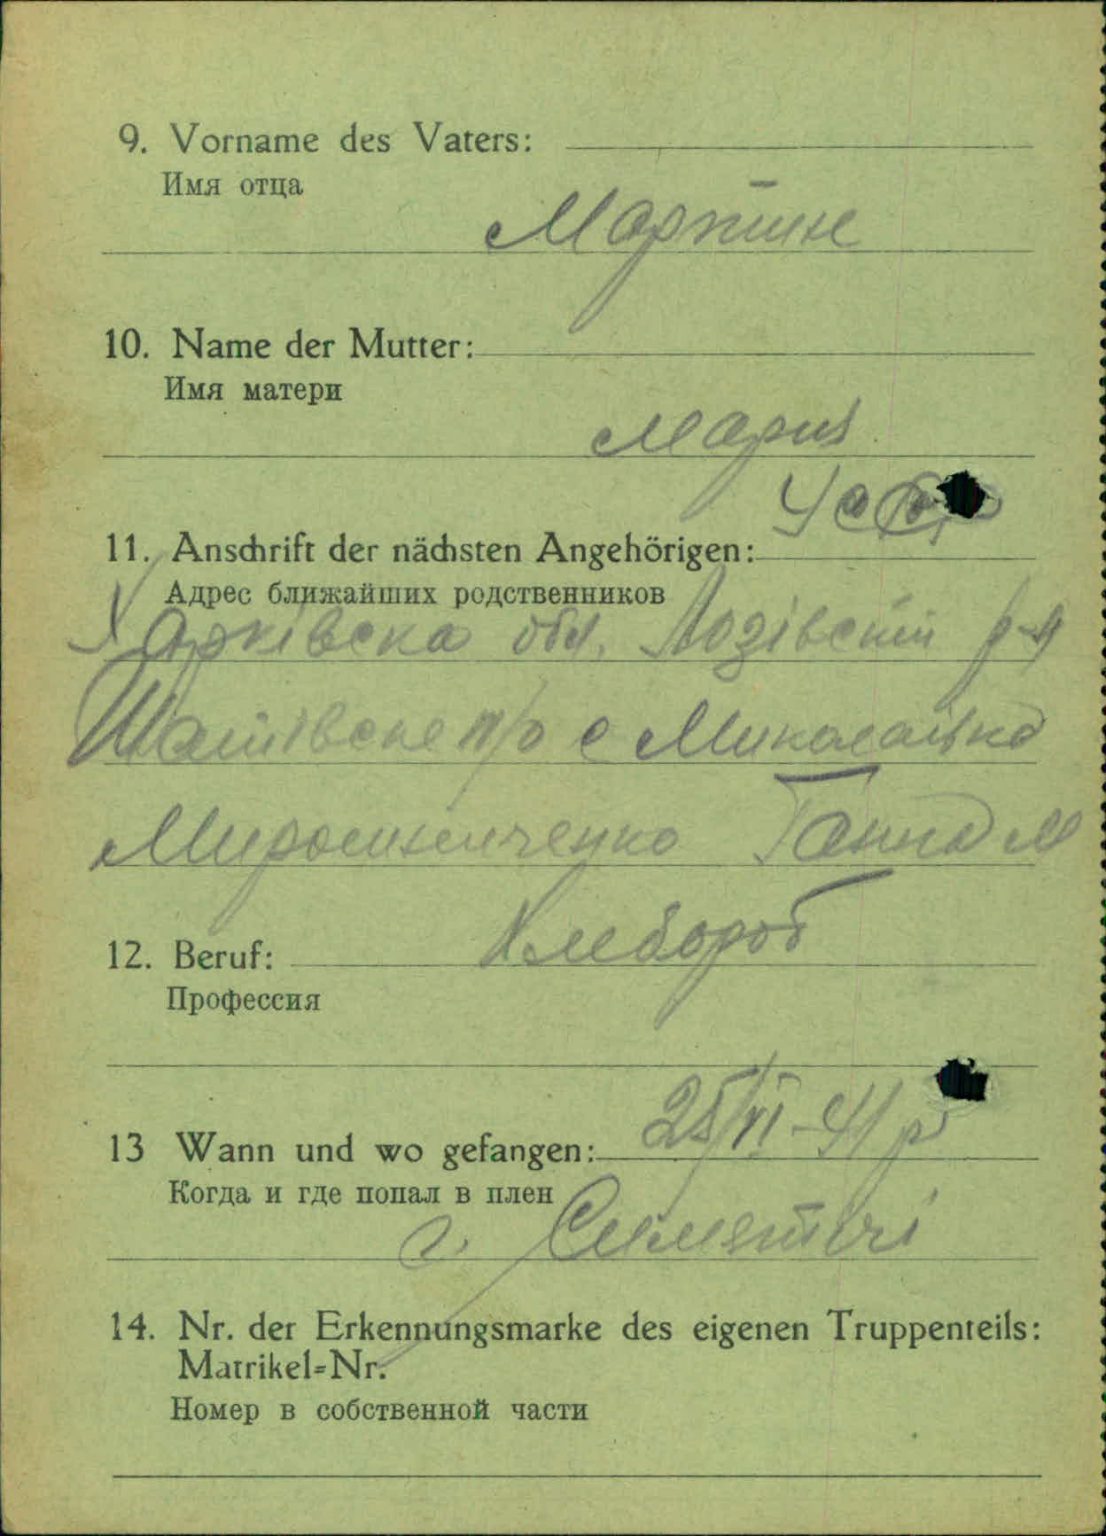 9. Vorname des Vaters:
Имя отца
Мартин
10. Name der Mutter:
Имя матери
Мария
11. Anschrift der nächsten Angehörigen:
Адрес ближайших родственников
Харківска обл. Лозівский р-н
п/о с Миколаївка
Мирошниченко Ганна М
Хлебороб
12. Beruf:
Профессия
25/VI-41 р
13 Wann und wo gefangen:
Когда и где попал в плен
г.
14. Nr. der Erkennungsmarke des eigenen Truppenteils:
Matrikel=Nr.
Номер в собственной части